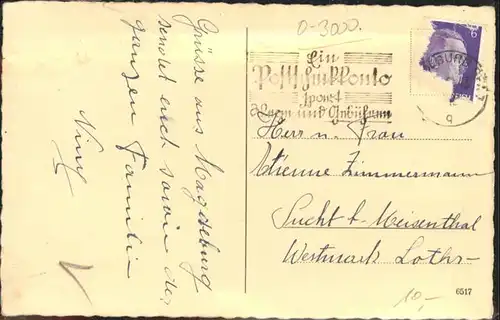 0-3000.
Ein
Postscheckkonto
spart
Wege und Gebühren
Grüsse aus Magdeburg
sendet euch sowie der
ganzen Familie
Herr u. Frau
Etienne Zimmermann
Sucht b. Meisenthal
Westmark Lothr.
6517
10,-